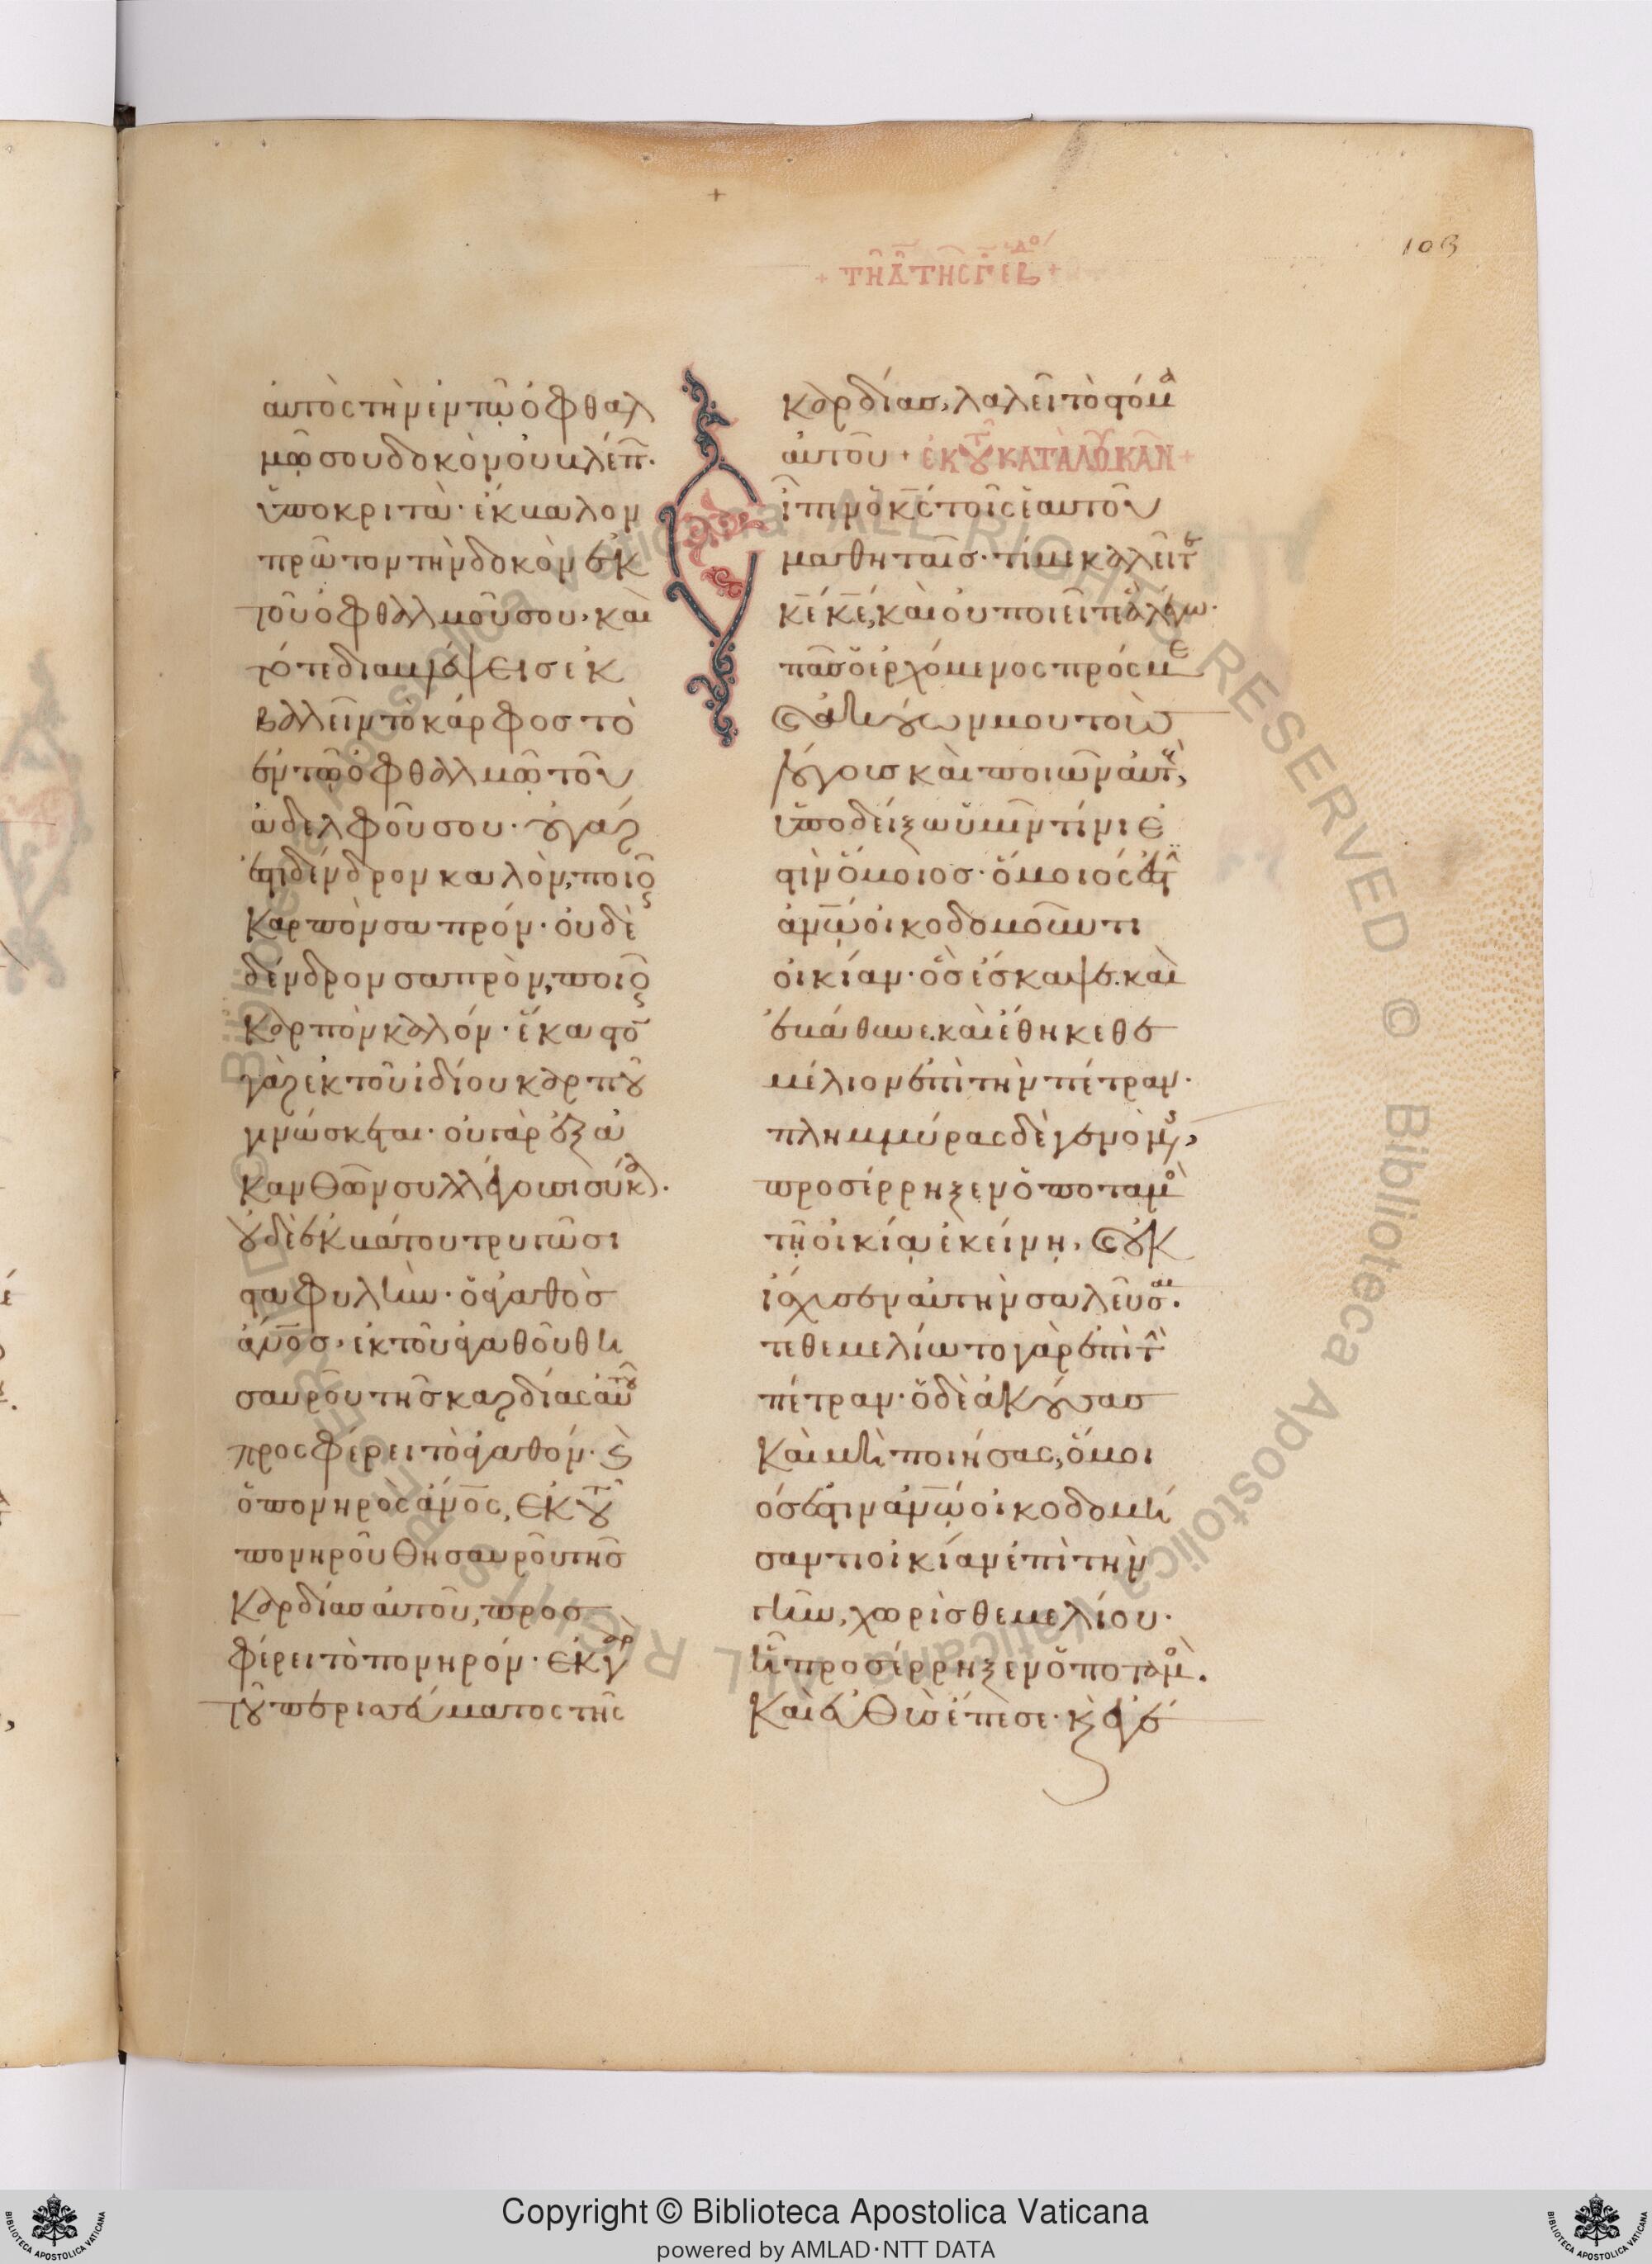 103
+ τῆ δ̄ τῆς γ̄ ἑβδο +
αὐτὸς τὴν ἐν τῷ ὀφθαλ
μῷ σου δοκὸν οὐ βλέπ·
ὑποκριτὰ· ἔκβαλον
πρῶτον τὴν δοκὸν ἐκ
τοῦ ὀφθαλμοῦ σου, καὶ
τότε διαβλέψεις ἐκ
βαλεῖν τὸ κάρφος τὸ
ἐν τῷ ὀφθαλμῷ τοῦ
ἀδελφοῦ σου· οὐ γάρ
ἐστι δένδρον καλὸν, ποιοῦ
καρπὸν σαπρόν· οὐδὲ
δένδρον σαπρὸν, ποιοῦ
καρπὸν καλόν· ἕκαστο
γὰρ ἐκ τοῦ ἰδίου καρποῦ
γινώσκεται· οὐ γὰρ ἐξ ἀ
κανθῶν συλλέγουσι σύκα·
οὐδὲ ἐκ βάτου τρυγῶσι
σταφυλήν· ὁ ἀγαθὸς
ἄνο̄ς, ἐκ τοῦ ἀγαθοῦ θη
σαυροῦ τῆς καρδίας αὐτοῦ
προσφέρει τὸ ἀγαθόν· κ̀
ὁ πονηρὸς ἄνο̄ς, ἐκ τοῦ
πονηροῦ θησαυροῦ τῆς
καρδίας αὐτοῦ, προσ
φέρει τὸ πονηρόν· ἐκ γὰρ
τοῦ περισσεύματος τῆς
καρδίας, λαλεῖ τὸ στόμα
αὐτοῦ + ἐκ τοῦ κατὰ λουκᾶν +
Εἶπεν ὁ κ̄ς τοῖς ἑαυτοῦ
μαθηταῖς· τί με καλεῖτε
κ̄ε κ̄ε, καὶ οὐ ποιεῖτε ἃ λέγω·
πᾶς ὁ ἐρχόμενος πρός με
καὶ ἀκούων μου τοὺς
λόγους καὶ ποιῶν αὐτούς,
ὑποδείξω ὑμῖν τίνι ἐ
στὶν ὅμοιος· ὅμοιός ἐστιν
ἀν̄ω̄ οἰκοδομοῦντι
οἰκίαν· ὃς ἔσκαψε. καὶ
ἐβάθυνε. καὶ ἔθηκε θε
μέλιον ἐπὶ τὴν πέτραν·
πλημμύρας δὲ γενομένης,
προσέρρηξεν ὁ ποταμὸς
τῇ οἰκίᾳ ἐκείνῃ, καὶ οὐκ
ἴσχυσεν αὐτὴν σαλεῦσαι·
τεθεμελίωτο γὰρ ἐπὶ τὴν
πέτραν· ὁ δὲ ἀκούσας
καὶ μὴ ποιήσας, ὅμοι
ός ἐστιν ἀν̄ω̄ οἰκοδομή
σαντι οἰκίαν ἐπὶ τὴν
γῆν, χωρὶς θεμελίου·
ᾗ προσέρρηξεν ὁ ποταμὸς.
καὶ εὐθὺς ἔπεσε· κ̀ ἐγέ
Copyright © Biblioteca Apostolica Vaticana
powered by AMLAD·NTT DATA